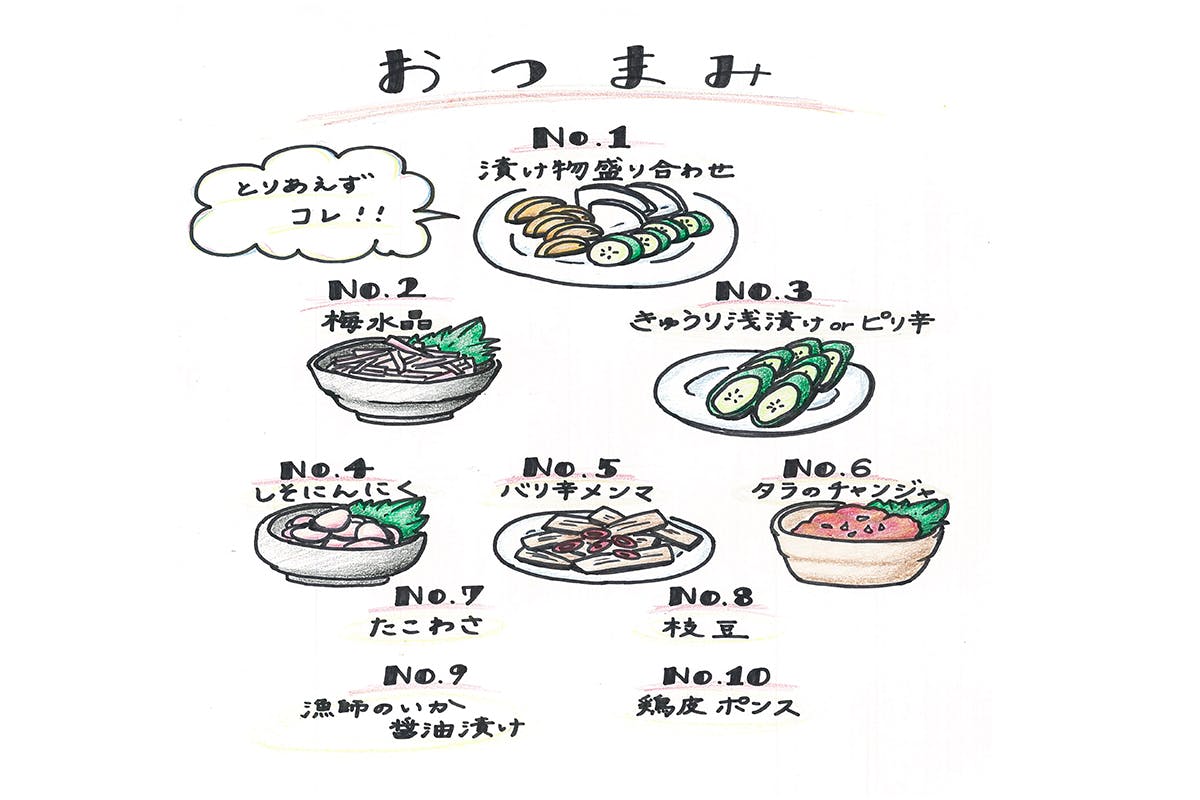 おつまみ
No.1
漬け物盛り合わせ
とりあえず
コレ!!
No.2
梅水晶
No.3
きゅうり浅漬けorピリ辛
No.4
しそにんにく
No.5
バリ辛メンマ
No.6
タラのチャンジャ
No.7
たこわさ
No.8
枝豆
No.9
漁師のいか
醤油漬け
No.10
鶏皮ポンス